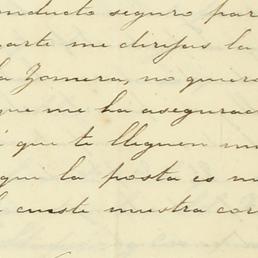 nducto seguro par
arte me dirijas la
la Zomera, no quiero
que me ha asegurac
i que te lleguen mi
qui la posta es mu
l cueste nuestra cor